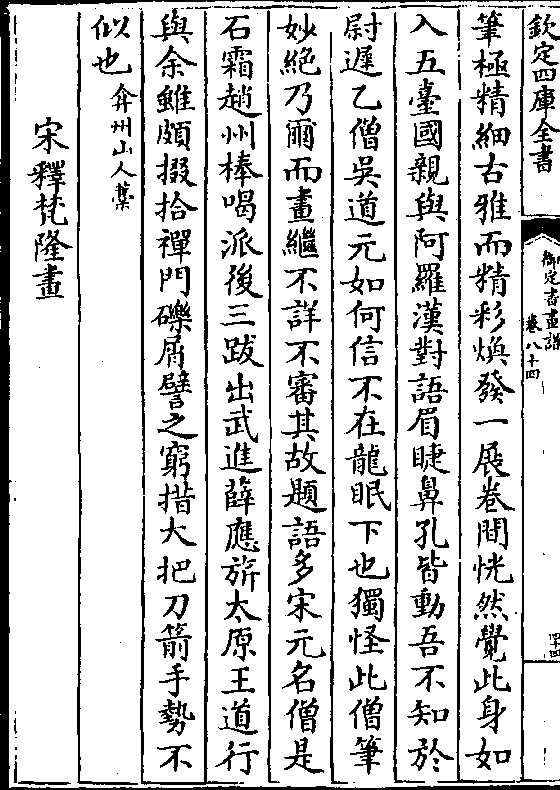 欽定四庫全書
御定書畫譜
卷八十四
四十四
筆極精細古雅而精彩煥發一展卷間恍然覺此身如
入五臺國親與阿羅漢對語眉睫鼻孔皆動吾不知於
尉遲乙僧吳道元如何信不在龍眠下也獨怪此僧筆
妙絶乃爾而畫繼不詳不審其故題語多宋元名僧是
石霜趙州棒喝派後三跋出武進薛應旂太原王道行
與余雖頗掇拾禪門礫屑譬之窮措大把刀箭手勢不
似也弇州山人藁
宋釋梵隆畫